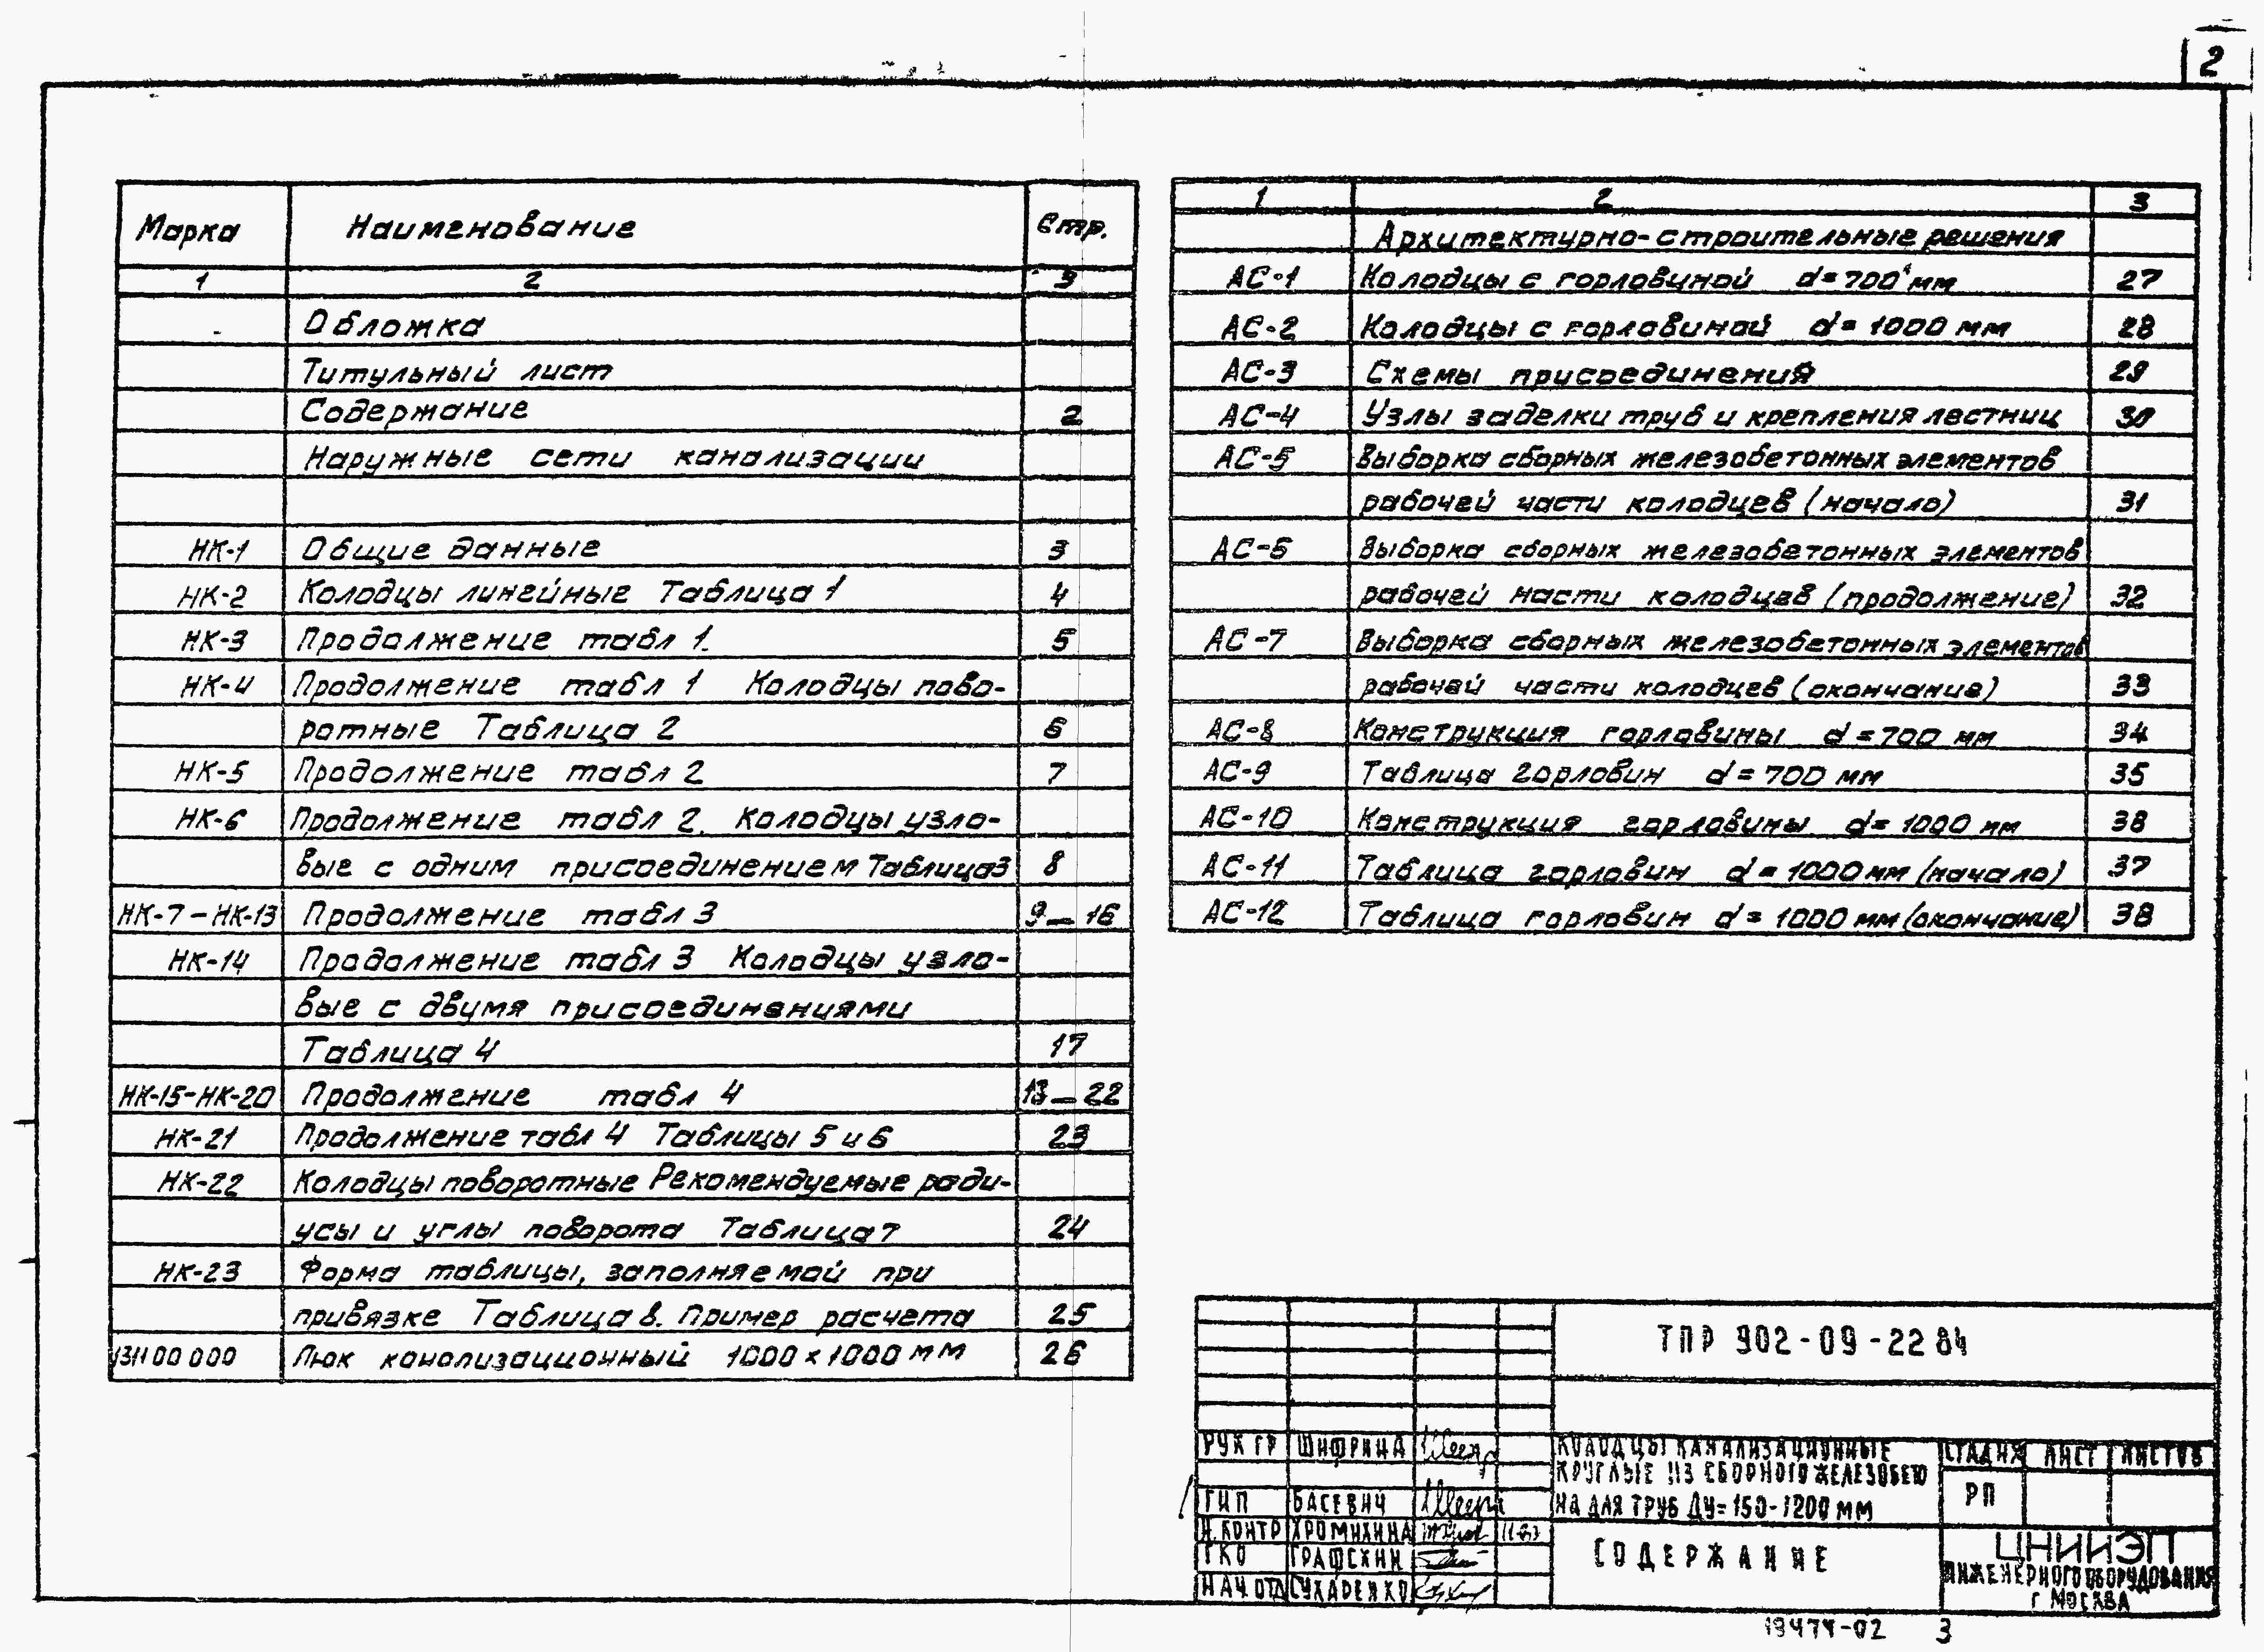 2
Марка Наименование Стр.
1 2 3
Обложка
Титульный лист
Содержание 2
Наружные сети канализации
НК-1 Общие данные 3
НК-2 Колодцы линейные Таблица 1 4
НК-3 Продолжение табл 1. 5
НК-4 Продолжение табл 1 Колодцы пово-
ротные Таблица 2 6
НК-5 Продолжение табл 2 7
НК-6 Продолжение табл 2. Колодцы узло-
вые с одним присоединением Таблица3 8
НК-7-НК-13 Продолжение табл 3 9-16
НК-14 Продолжение табл 3 Колодцы узло-
вые с двумя присоединениями
Таблица 4 17
НК-15-НК-20 Продолжение табл 4 13-22
НК-21 Продолжение табл 4 Таблицы 5 и 6 23
НК-22 Колодцы поворотные Рекомендуемые ради-
усы и углы поворота Таблица 7 24
НК-23 Форма таблицы, заполняемой при
привязке Таблица 8. Пример расчета 25
1311 00 000 Люк канализационный 1000×1000 мм 26
1 2 3
Архитектурно-строительные решения
АС-1 Колодцы с горловиной d=700 мм 27
АС-2 Колодцы с горловиной d=1000 мм 28
АС-3 Схемы присоединения 29
АС-4 Узлы заделки труб и крепления лестниц 30
АС-5 Выборка сборных железобетонных элементов
рабочей части колодцев (начало) 31
АС-6 Выборка сборных железобетонных элементов
рабочей части колодцев (продолжение) 32
АС-7 Выборка сборных железобетонных элементов
рабочей части колодцев (окончание) 33
АС-8 Конструкция горловины d=700 мм 34
АС-9 Таблица горловин d=700 мм 35
АС-10 Конструкция горловины d=1000 мм 38
АС-11 Таблица горловин d=1000 мм (начало) 37
АС-12 Таблица горловин d=1000 мм (окончание) 38
ТПР 902-09-22 84
РУК ГР ШИФРИНА
ГИП БАСЕВИЧ
Н.КОНТР ХРОМИХИНА
ГКО ГРАФСКИЙ
НАЧ ОТД СУХАРЕНКО
КОЛОДЦЫ КАНАЛИЗАЦИОННЫЕ
КРУГЛЫЕ ИЗ СБОРНОГО ЖЕЛЕЗОБЕТО
НА ДЛЯ ТРУБ ДУ=150-1200 ММ
СТАДИЯ ЛИСТ ЛИСТОВ
РП
СОДЕРЖАНИЕ
ЦНИИЭП
ИНЖЕНЕРНОГО ОБОРУДОВАНИЯ
Г МОСКВА
19474-02 3